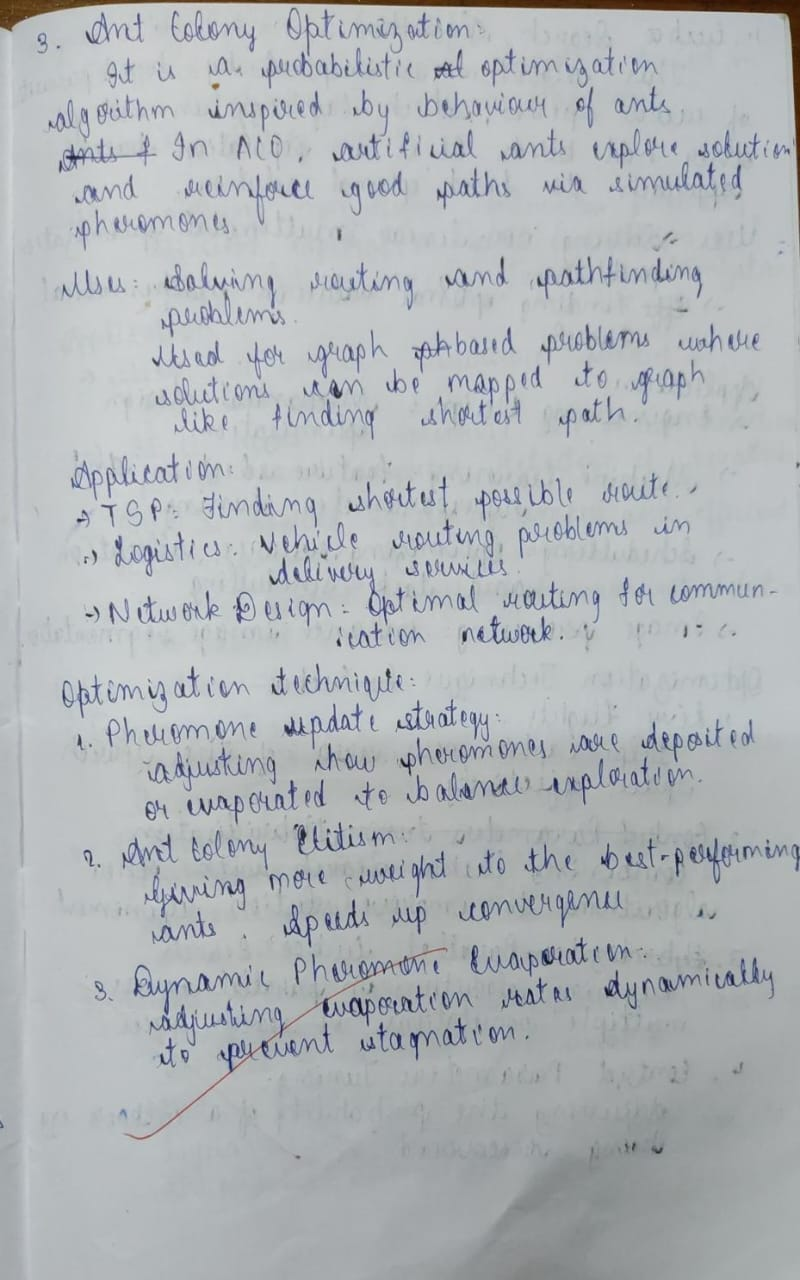 3. Ant Colony Optimization:
It is a probabilistic optimization
algorithm inspired by behaviour of ants.
In ACO, artificial ants explore solution
and reinforce good paths via simulated
pheromones.
Uses: Solving routing and pathfinding
problems.
Used for graph based problems where
solutions can be mapped to graph
like finding shortest path.
Application:
→ TSP: Finding shortest possible route.
→ Logistics: Vehicle routing problems in
delivery services.
→ Network Design: Optimal routing for commun-
ication network.
Optimization technique:
1. Pheromone update strategy:
adjusting how pheromones are deposited
or evaporated to balance exploration.
2. Ant Colony Elitism:
Giving more weight to the best-performing
ants. Speeds up convergence
3. Dynamic Pheromone Evaporation:
adjusting evaporation rates dynamically
to prevent stagnation.